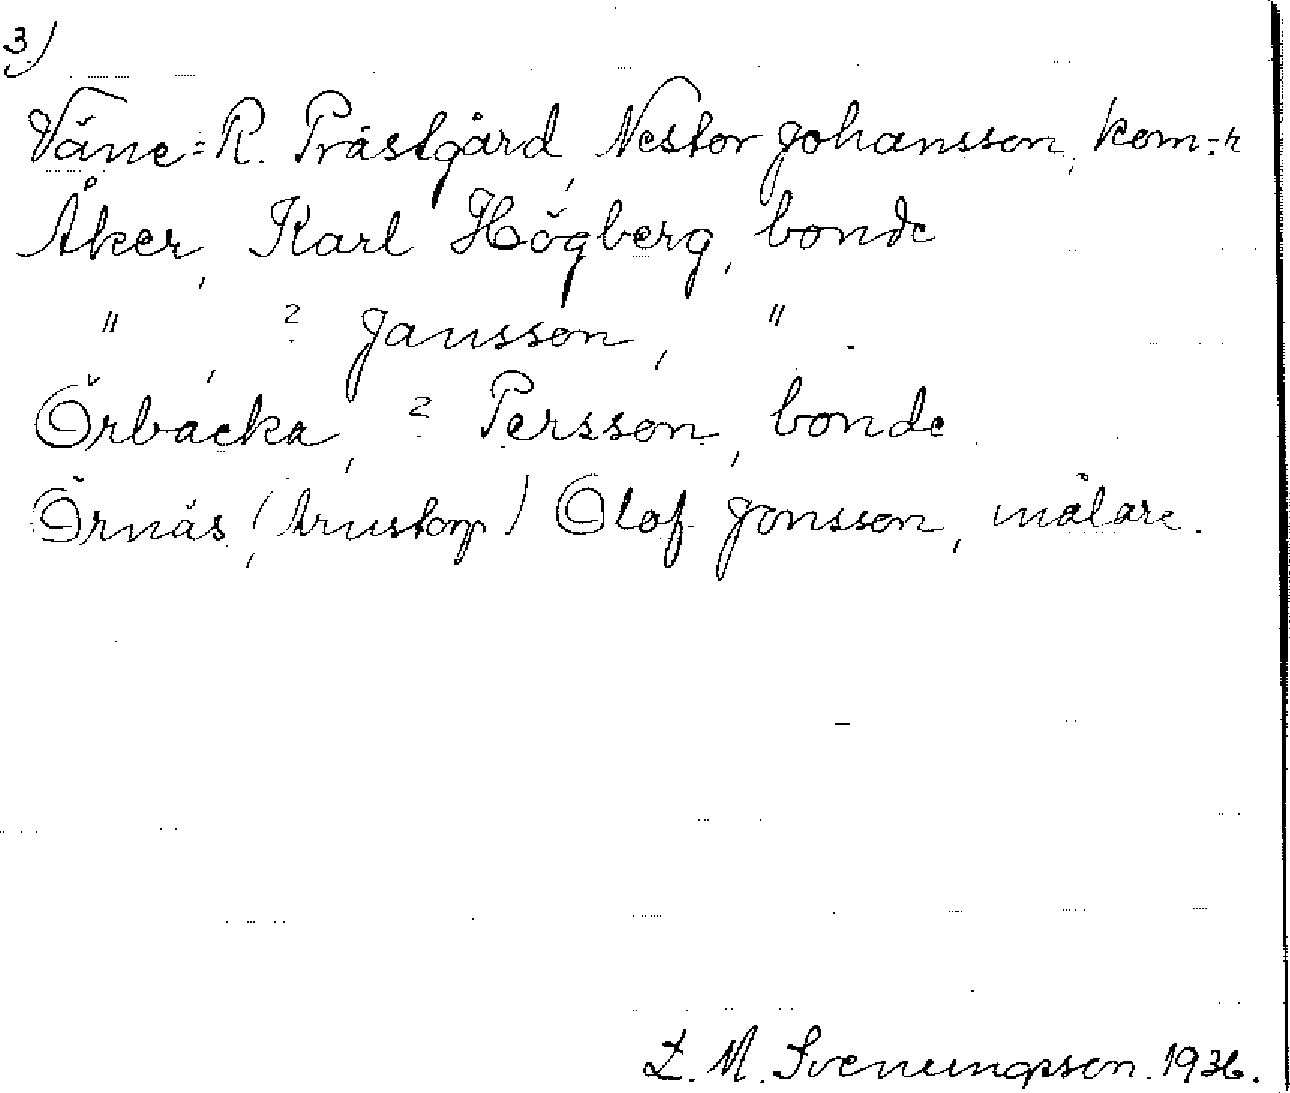 3)
Väne=R. Prästgård, Nestor Johansson, kom=r
Åker, Karl Högberg, bonde
" , ? Jansson, " .
Örbäcka, ? Persson, bonde
Örnäs, (krustorp) Olof Jonsson, målare.
L. M. Svenungsson. 1936.